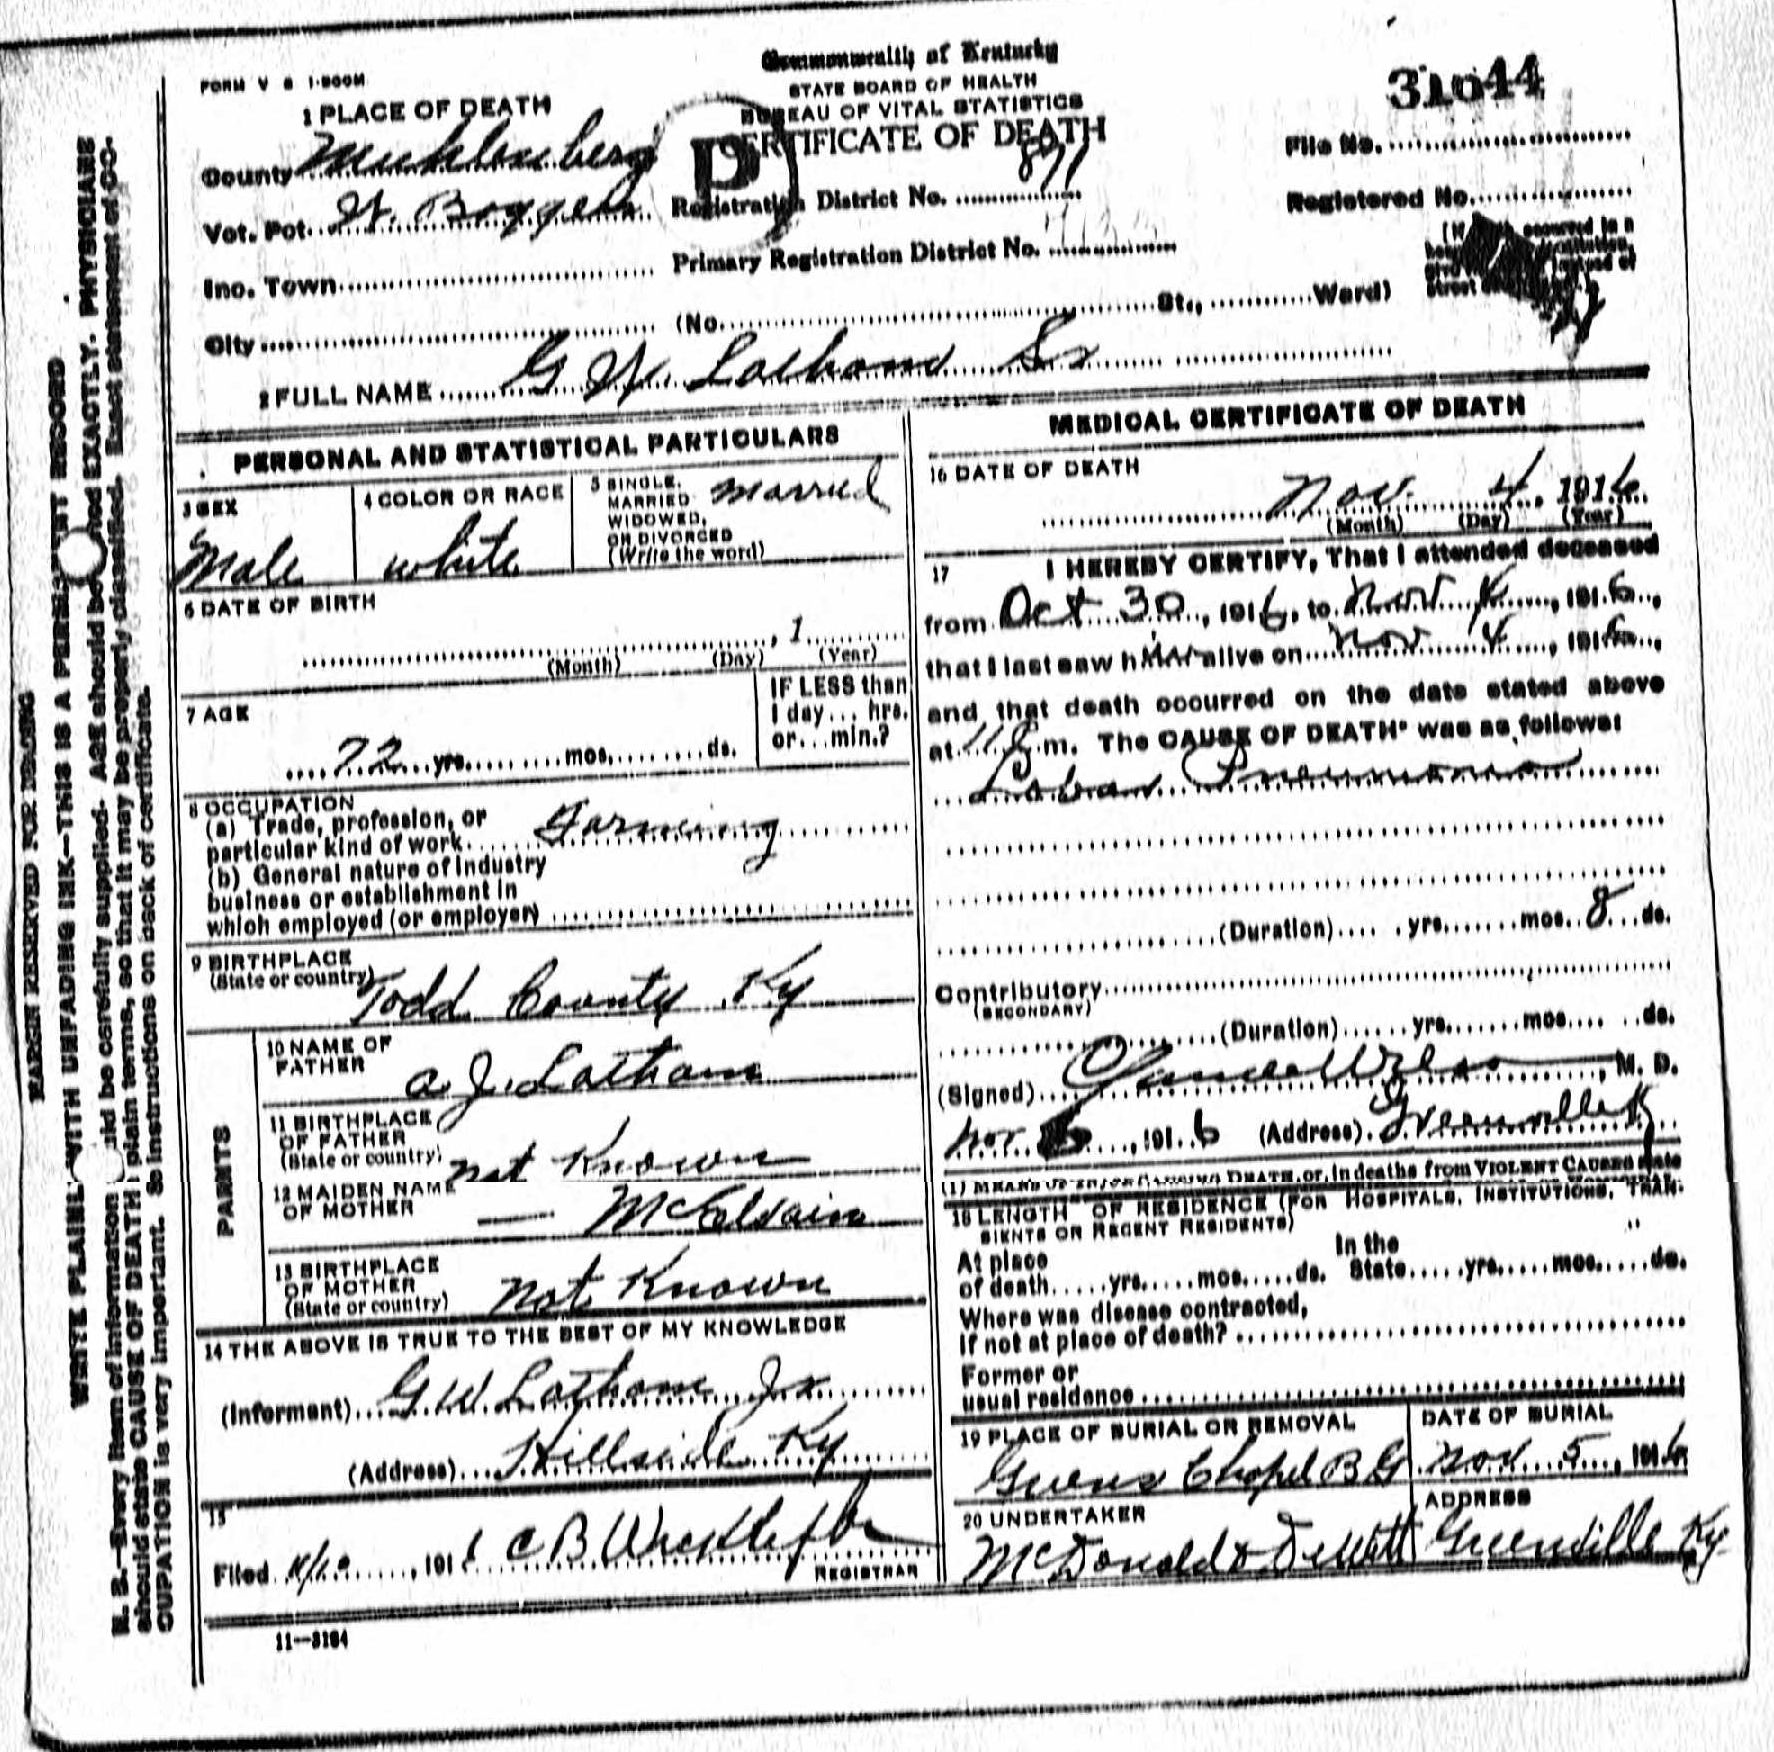 FORM V S 1-500M
Commonwealth of Kentucky
STATE BOARD OF HEALTH
BUREAU OF VITAL STATISTICS
CERTIFICATE OF DEATH
31044
1 PLACE OF DEATH
County Muhlenberg
Vot. Pct. W. Boggess
Registration District No. 871
Primary Registration District No.
File No.
Registered No.
Inc. Town
City (No. St., Ward)
2 FULL NAME G W Latham Sr
PERSONAL AND STATISTICAL PARTICULARS
3 SEX
Male
4 COLOR OR RACE
white
5 SINGLE,
MARRIED
WIDOWED,
OR DIVORCED
(Write the word)
married
6 DATE OF BIRTH
, 1
(Month) (Day) (Year)
7 AGE
72 yrs. mos. ds.
IF LESS than
1 day... hrs.
or... min.?
8 OCCUPATION
(a) Trade, profession, or
particular kind of work Farming
(b) General nature of industry
business or establishment in
which employed (or employer)
9 BIRTHPLACE
(State or country)
Todd County Ky
PARENTS
10 NAME OF
FATHER
A J. Latham
11 BIRTHPLACE
OF FATHER
(State or country)
not Known
12 MAIDEN NAME
OF MOTHER
— McElvain
13 BIRTHPLACE
OF MOTHER
(State or country)
not Known
14 THE ABOVE IS TRUE TO THE BEST OF MY KNOWLEDGE
(Informant) G. W. Latham Jr.
(Address) Hillside Ky
15
Filed , 191
REGISTRAR
11—3184
MEDICAL CERTIFICATE OF DEATH
16 DATE OF DEATH
Nov. 4, 1916
(Month) (Day) (Year)
17 I HEREBY CERTIFY, That I attended deceased
from Oct 30, 1916, to Nov 4, 1916,
that I last saw him alive on Nov 4, 1916,
and that death occurred on the date stated above
at 11 m. The CAUSE OF DEATH* was as follows:
Lobar Pneumonia
(Duration) yrs. mos. 8 ds.
Contributory
(SECONDARY)
(Duration) yrs. mos. ds.
(Signed) , M. D.
Nov. , 1916 (Address) Greenville Ky
(1) MEANS OF INJURY CAUSING DEATH, or, in deaths from VIOLENT CAUSES state
18 LENGTH OF RESIDENCE (FOR HOSPITALS, INSTITUTIONS, TRAN-
SIENTS OR RECENT RESIDENTS)
At place
of death yrs. mos. ds.
In the
State yrs. mos. ds.
Where was disease contracted,
If not at place of death?
Former or
usual residence
19 PLACE OF BURIAL OR REMOVAL
Chapel B G
DATE OF BURIAL
Nov. 5, 1916
20 UNDERTAKER
McDonald & DeWitt
ADDRESS
Greenville Ky
MARGIN RESERVED FOR BINDING
WRITE PLAINLY WITH UNFADING INK—THIS IS A PERMANENT RECORD
N. B.—Every item of information should be carefully supplied. AGE should be stated EXACTLY. PHYSICIANS
should state CAUSE OF DEATH in plain terms, so that it may be properly classified. Exact statement of OC-
CUPATION is very important. See instructions on back of certificate.